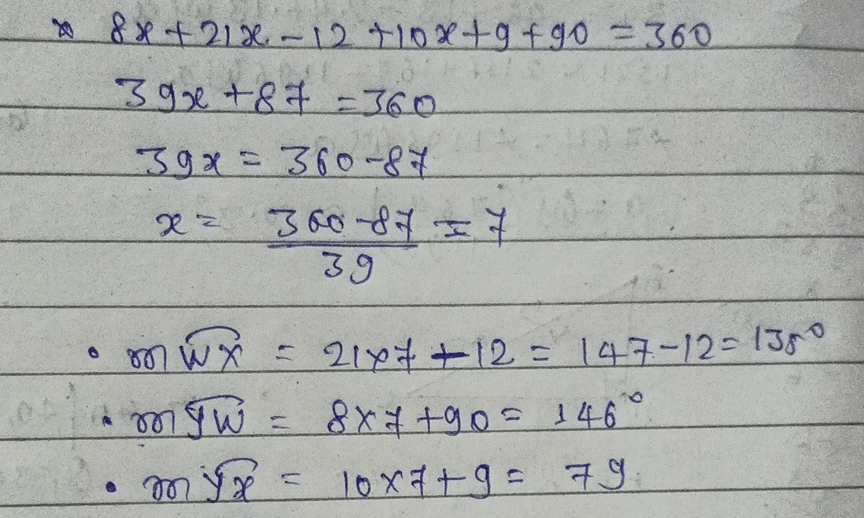 * 8x+21x-12+10x+9+90=360
39x+87=360
39x=360-87
x= 360-87 = 7
39
• m WX = 21x7+12 = 147-12= 135°
• m YW = 8x7+90= 146°
• m YX = 10x7+9= 79